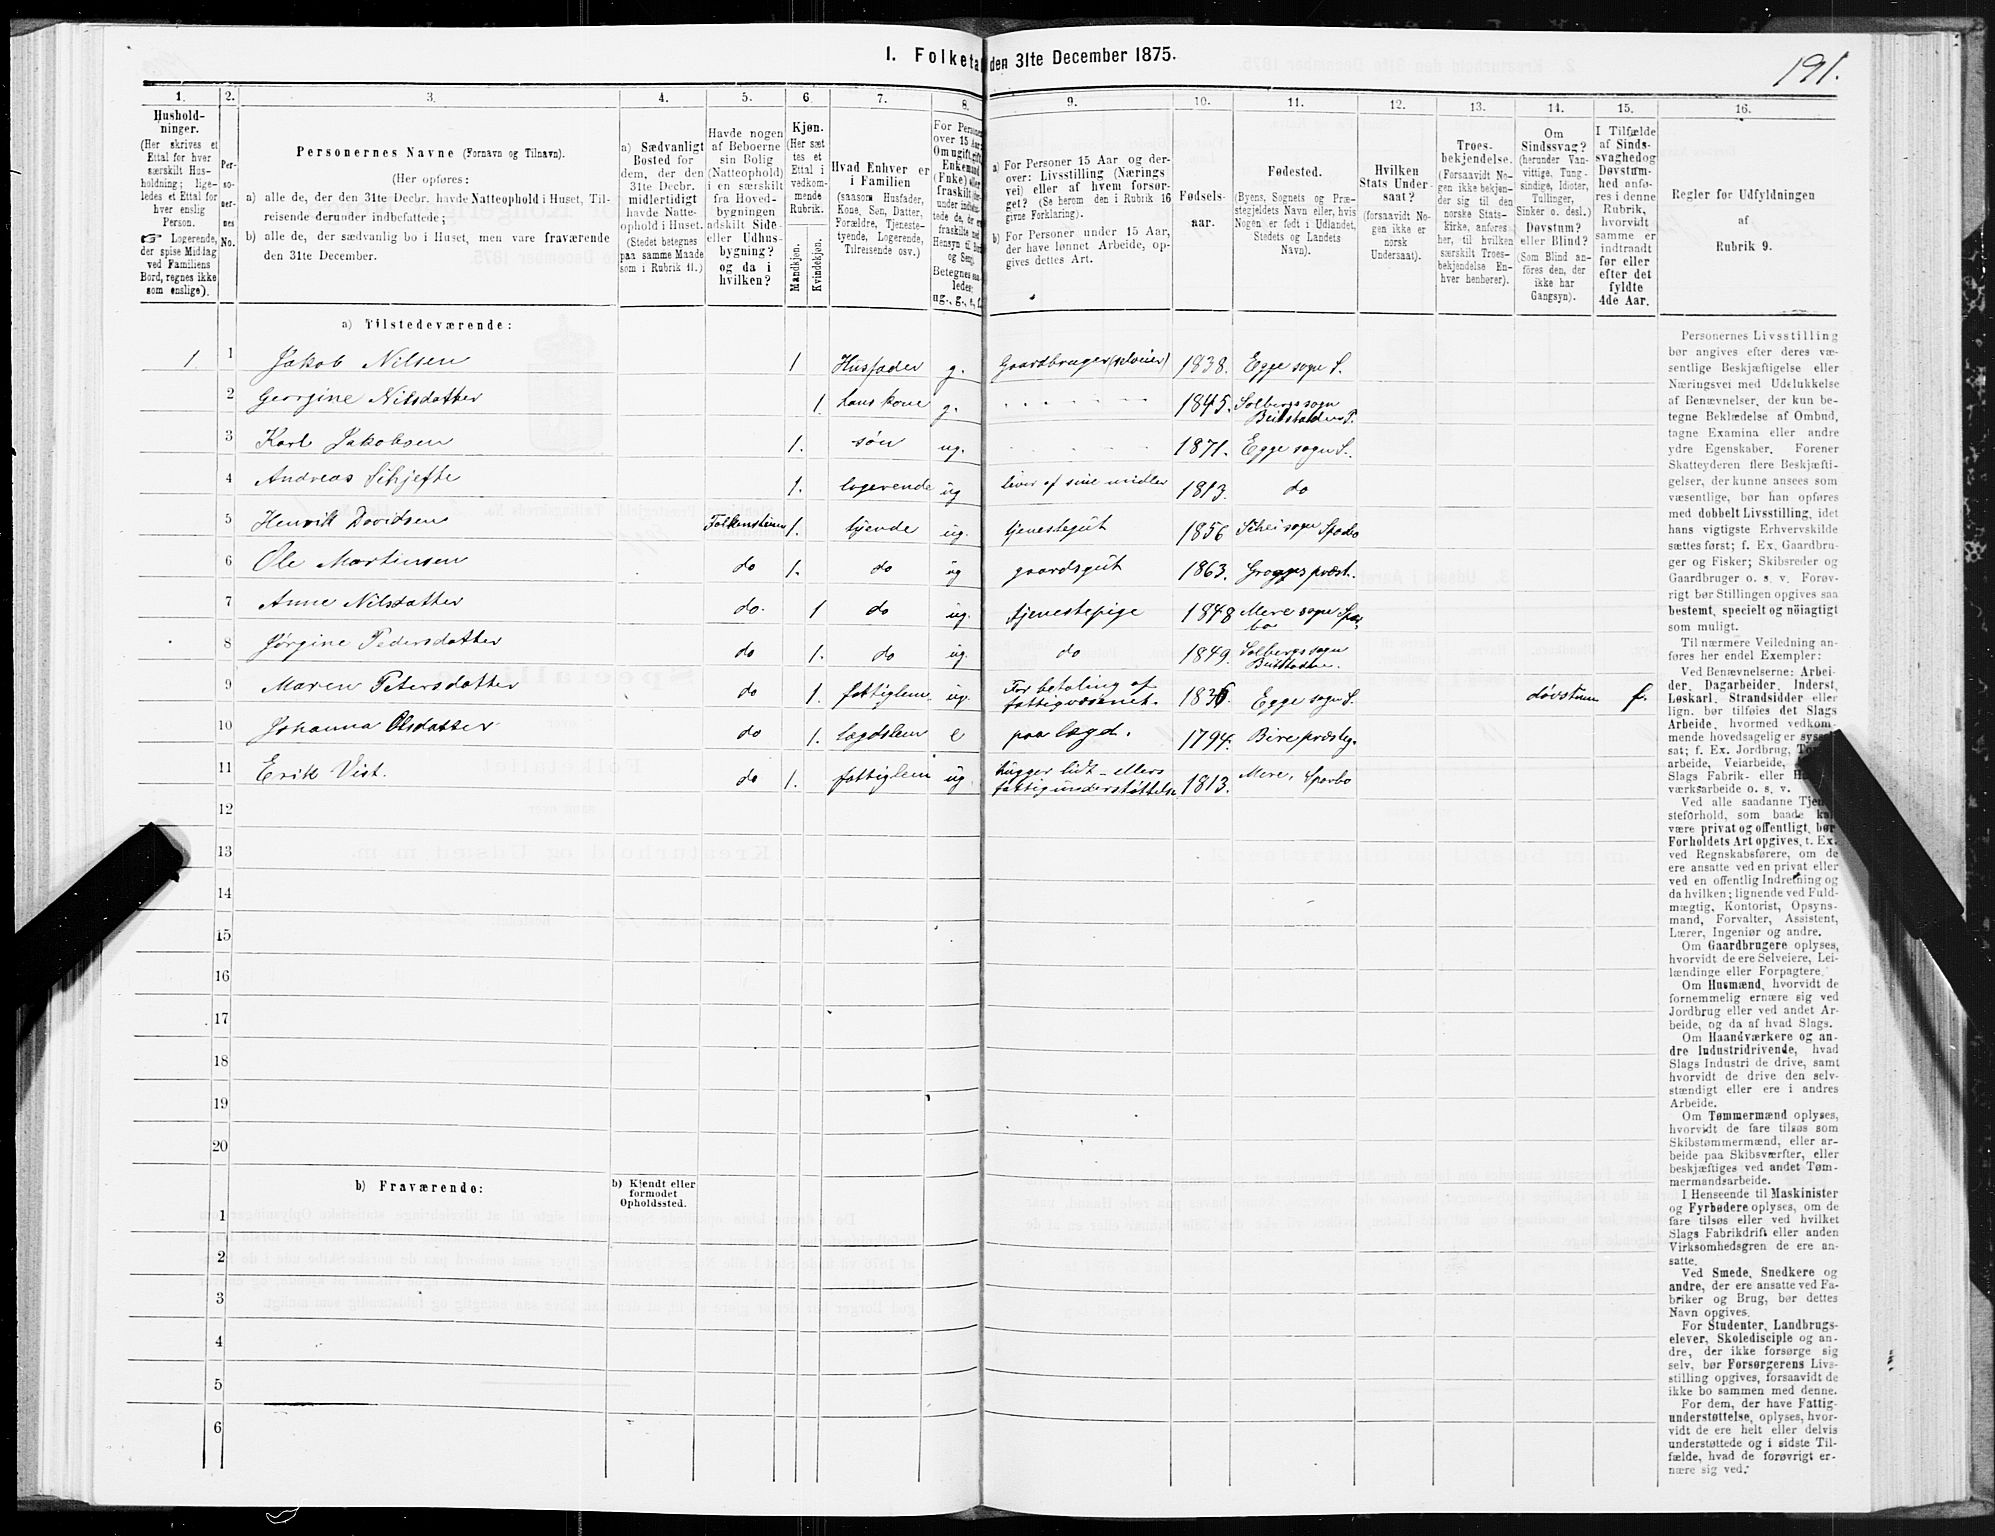 191.
I. Folketal den 31te December 1875.
1. 2. 3. 4. 5. 6. 7. 8. 9. 10. 11. 12. 13. 14. 15. 16.
Hushold-
ninger.
(Her skrives et
Ettal for hver
særskilt Hus-
holdning; lige-
ledes et Ettal for
hver enslig
Person.
☞ Logerende,
der spise Middag
ved Familiens
Bord, regnes ikke
som enslige).
Per-
so-
ner-
nes
No.
Personernes Navne (Fornavn og Tilnavn).
(Her opføres:
a) alle de, der den 31te Decbr. havde Natteophold i Huset, Til-
reisende derunder indbefattede;
b) alle de, der sædvanlig bo i Huset, men vare fraværende
den 31te December.
a) Sædvanligt
Bosted for
dem, der den
31te Decbr.
midlertidigt
havde Natte-
ophold i Huset.
(Stedet betegnes
paa samme Maade
som i Rubrik 11.)
Havde nogen
af Beboerne
sin Bolig
(Natteophold)
i en særskilt
fra Hoved-
bygningen
adskilt Side-
eller Udhus-
bygning?
og da i
hvilken?
Kjøn.
(Her sæt-
tes et
Ettal i
vedkom-
mende
Rubrik.
Mandkjøn.
Kvindekjøn.
Hvad Enhver er
i Familien
(saasom Husfader,
Kone, Søn, Datter,
Forældre, Tjeneste-
tyende, Logerende,
Tilreisende osv.)
For Personer
over 15 Aar:
Om ugift, gift,
Enkemand
(Enke) eller
fraskilt
Betegnes saa-
ledes:
ug., g., e., f.
a) For Personer 15 Aar og der-
over: Livsstilling (Nærings
vei) eller af hvem forsør-
get? (Se herom den i Rubrik 16
givne Forklaring).
b) For Personer under 15 Aar,
der have lønnet Arbeide, op-
gives dettes Art.
Fødsels-
aar.
Fødested.
(Byens, Sognets og Præ-
stegjeldets Navn eller, hvis
Nogen er født i Udlandet,
Stedets og Landets
Navn).
Hvilken
Stats Under-
saat?
(forsaavidt No-
gen ikke er
norsk
Undersaat).
Troes-
bekjendelse.
(Forsaavidt No-
gen ikke bekjen-
der sig til den
norske Stats-
kirke, anføres
her, til hvilken
særskilt Troes-
bekjendelse En-
hver henhører).
Om
Sindssvag?
(herunder Van-
vittige, Tung-
sindige, Idioter,
Tullinger,
Sinker o. desl.)
Døvstum?
eller Blind?
(Som Blind an-
føres den, der
ikke har
Gangsyn).
I Tilfælde
af Sinds-
svaghed og
Døvstum-
hed anfø-
res i denne
Rubrik,
hvorvidt
samme er
indtraadt
før eller
efter det
fyldte
4de Aar.
Regler før Udfyldningen
af
Rubrik 9.
a) Tilstedeværende:
1. 1 Jakob Nilsen 1 Husfader g. Gaardbruger (selveier) 1838. Egge sogn S.
2 Georgine Nilsdatter 1. hans kone g. 1845. Solbergs sogn
Beitstaden P.
3 Karl Jakobsen 1. søn ug. 1871. Egge sogn S.
4 Andreas Schjefte 1. logerende ug lever af sine midler 1813. do
5 Henrik Davidsen 1. tjende ug. tjenestegut 1856 Schei sogn Sparbo
6 Ole Martinsen do 1. do ug gaardsgut 1863. præst.
7 Anne Nilsdatter do. 1 do ug. tjenestepige 1848 Mere sogn Spar-
bo
8 Jørgine Pedersdatter do 1. do ug. do 1849. Solbergs sogn
9 Maren Petersdatter do 1. fattiglem. ug. For betaling af
fattigvæsenet. 1836. Egge sogn S. døvstum f.
10 Johanna Olsdatter do 1. lægdslem e paa lægd. 1794. præsteg.
11 Erik Vist. do 1. fattiglem ug. hugger lidt - ellers
fattigunderstøttelse 1813. Mere, Sparbo
12
13
14
15
16
17
18
19
20
b) Fraværende:
b) Kjendt eller
formodet
Opholdssted.
1
2
3
4
5
6
Personernes Livsstilling
bør angives efter deres væ-
sentlige Beskjæftigelse eller
Næringsvei med Udelukkelse
af Benævnelser, der kun be-
tegne Beklædelse af Ombud,
tagne Examina eller andre
ydre Egenskaber. Forener
Skatteyderen flere Beskjæfti-
gelser, der kunne ansees som
væsentlige, bør han opføres
med dobbelt Livsstilling, idet
hans vigtigste Erhvervskilde
sættes først; f. Ex. Gaardbru-
ger og Fisker; Skibsreder og
Gaardbruger o. s. v. Forøv-
rigt bør Stillingen opgives saa
bestemt, specielt og nøiagtigt
som muligt.
Til nærmere Veiledning an-
føres her endel Exempler:
Ved Benævnelserne: Arbei-
der, Dagarbeider, Inderst,
Løskarl, Strandsidder eller
lign. bør tilføies det Slags
Arbeide, hvormed vedkom-
mende hovedsagelig er syssel-
sat; f. Ex. Jordbrug,
arbeide, Veiarbeide,
værksarbeide o. s. v.
Ved alle saadanne Tjene-
steforhold, som baade kan
være privat og offentligt, bør
Forholdets Art opgives, t. Ex.
ved Regnskabsførere, om de
ere ansatte ved en privat eller
ved en offentlig Indretning og
da hvilken; lignende ved Fuld-
mægtig, Kontorist, Opsyns-
mand, Forvalter, Assistent,
Lærer, Ingeniør og andre.
Om Gaardbrugere oplyses,
hvorvidt de ere Selveiere, Lei-
lændinge eller Forpagtere.
Om Husmænd, hvorvidt de
fornemmelig ernære sig ved
Jordbrug eller ved andet Ar-
beide, og da af hvad Slags.
Om Haandværkere og an-
dre Industridrivende, hvad
Slags Industri de drive, samt
hvorvidt de drive den selv-
stændigt eller ere i andres
Arbeide.
Om Tømmermænd oplyses,
hvorvidt de fare tilsøs som
Skibstømmermænd, eller ar-
beide paa Skibsværfter, eller
beskjæftiges ved andet Tøm-
mermandsarbeide.
I Henseende til Maskinister
og Fyrbødere oplyses, om de
fare tilsøs eller ved hvilket
Slags Fabrikdrift eller anden
Virksomhedsgren de ere an-
satte.
Ved Smede, Snedkere og
andre, der ere ansatte ved Fa-
briker og Brug, bør dettes
Navn opgives.
For Studenter, Landbrugs-
elever, Skoledisciple og an-
dre, der ikke forsørge sig
selv, bør Forsørgerens Livs-
stilling opgives, forsaavidt de
ikke bo sammen med denne.
For dem, der have Fattig-
understøttelse, oplyses, hvor-
vidt de ere helt eller delvis
understøttede og i sidste Til-
fælde, hvad de forøvrigt er-
nære sig ved.